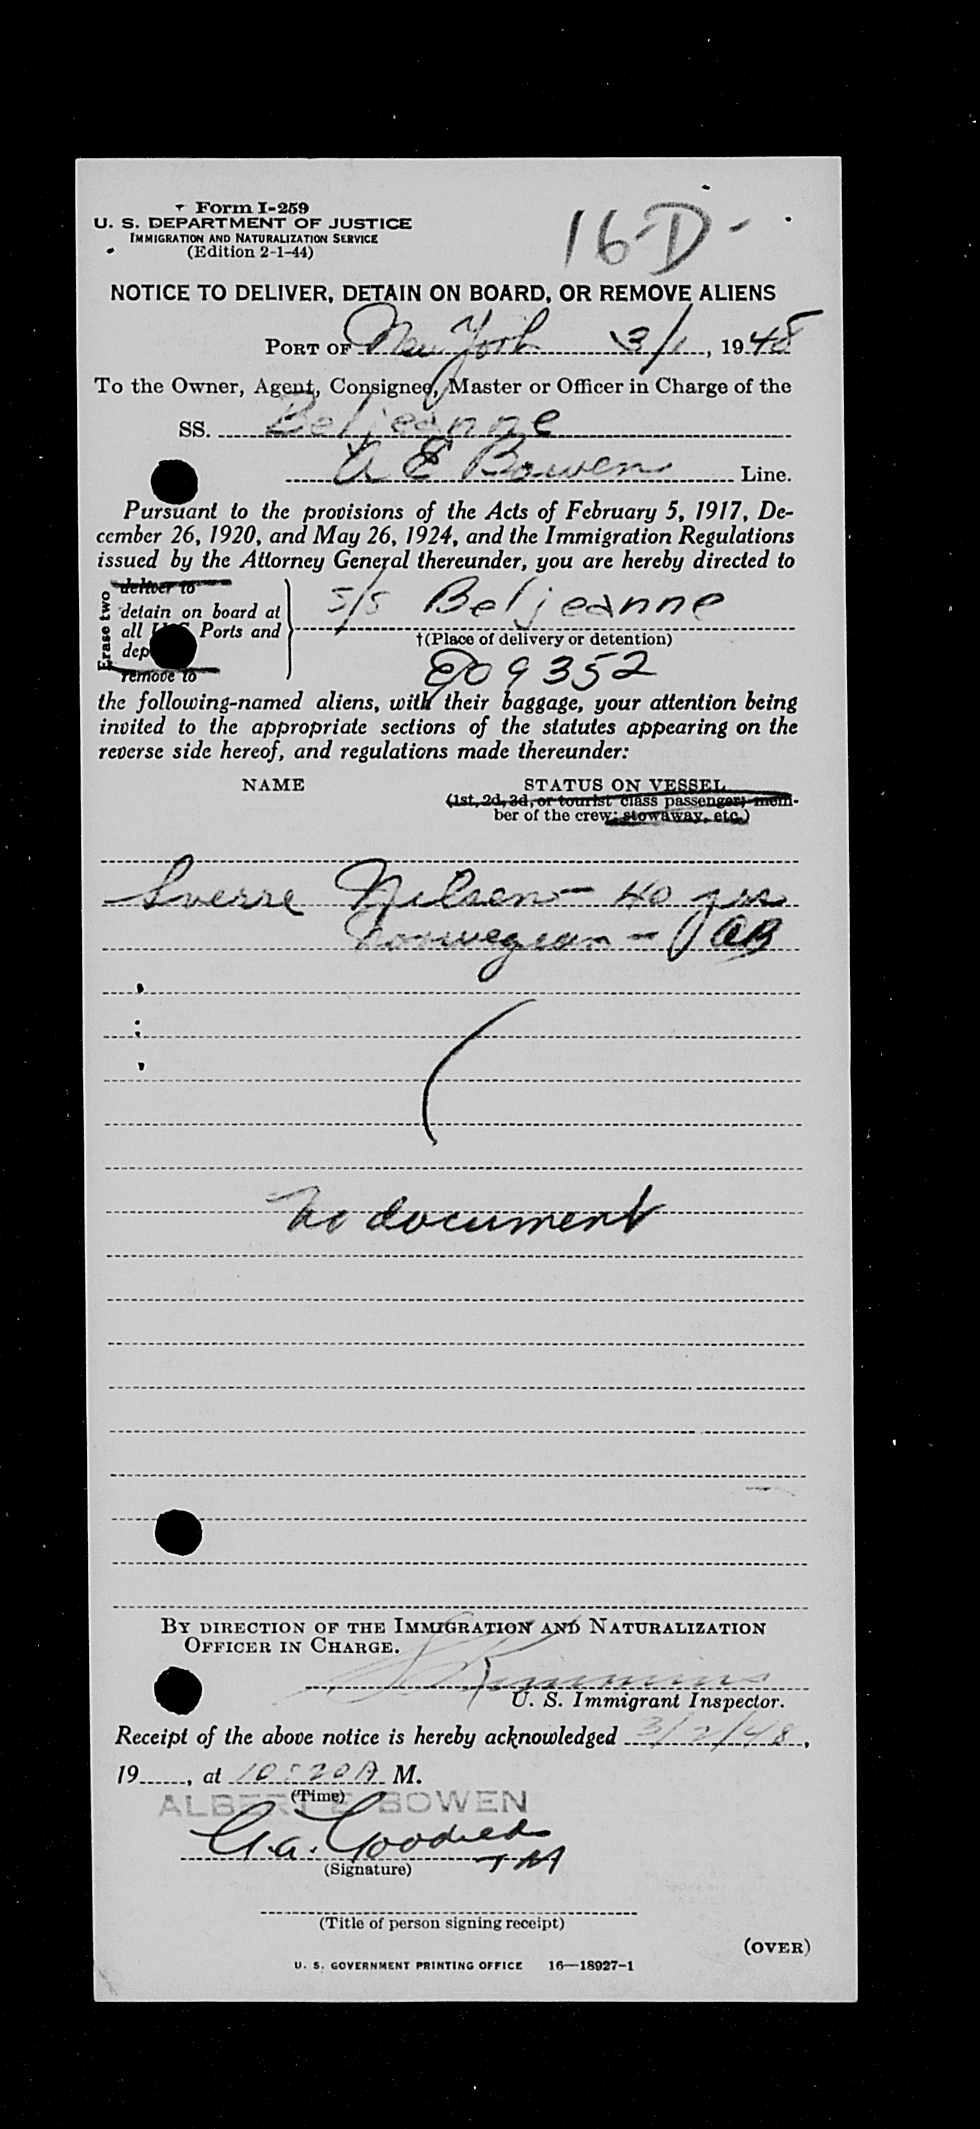 Form I-259
U. S. DEPARTMENT OF JUSTICE
IMMIGRATION AND NATURALIZATION SERVICE
(Edition 2-1-44)
16-D-
NOTICE TO DELIVER, DETAIN ON BOARD, OR REMOVE ALIENS
PORT OF New York 3/1, 1948
To the Owner, Agent, Consignee, Master or Officer in Charge of the
SS. Beljeanne
A E Bowen Line.
Pursuant to the provisions of the Acts of February 5, 1917, De-
cember 26, 1920, and May 26, 1924, and the Immigration Regulations
issued by the Attorney General thereunder, you are hereby directed to
Erase two
deliver to
detain on board at
all U S Ports and
dep
remove to
S/S Beljeanne
†(Place of delivery or detention)
09352
the following-named aliens, with their baggage, your attention being
invited to the appropriate sections of the statutes appearing on the
reverse side hereof, and regulations made thereunder:
NAME STATUS ON VESSEL
(1st, 2d, 3d, or tourist class passenger; mem-
ber of the crew; stowaway, etc.)
Sverre Nilsen - 40 yrs
Norwegian - AB
No document
BY DIRECTION OF THE IMMIGRATION AND NATURALIZATION
OFFICER IN CHARGE.
Kimmins
U. S. Immigrant Inspector.
Receipt of the above notice is hereby acknowledged 3/2/48,
19, at 10:20 A M.
(Time)
ALBERT E BOWEN
G.A.
(Signature)
(Title of person signing receipt)
(OVER)
U. S. GOVERNMENT PRINTING OFFICE 16—18927-1